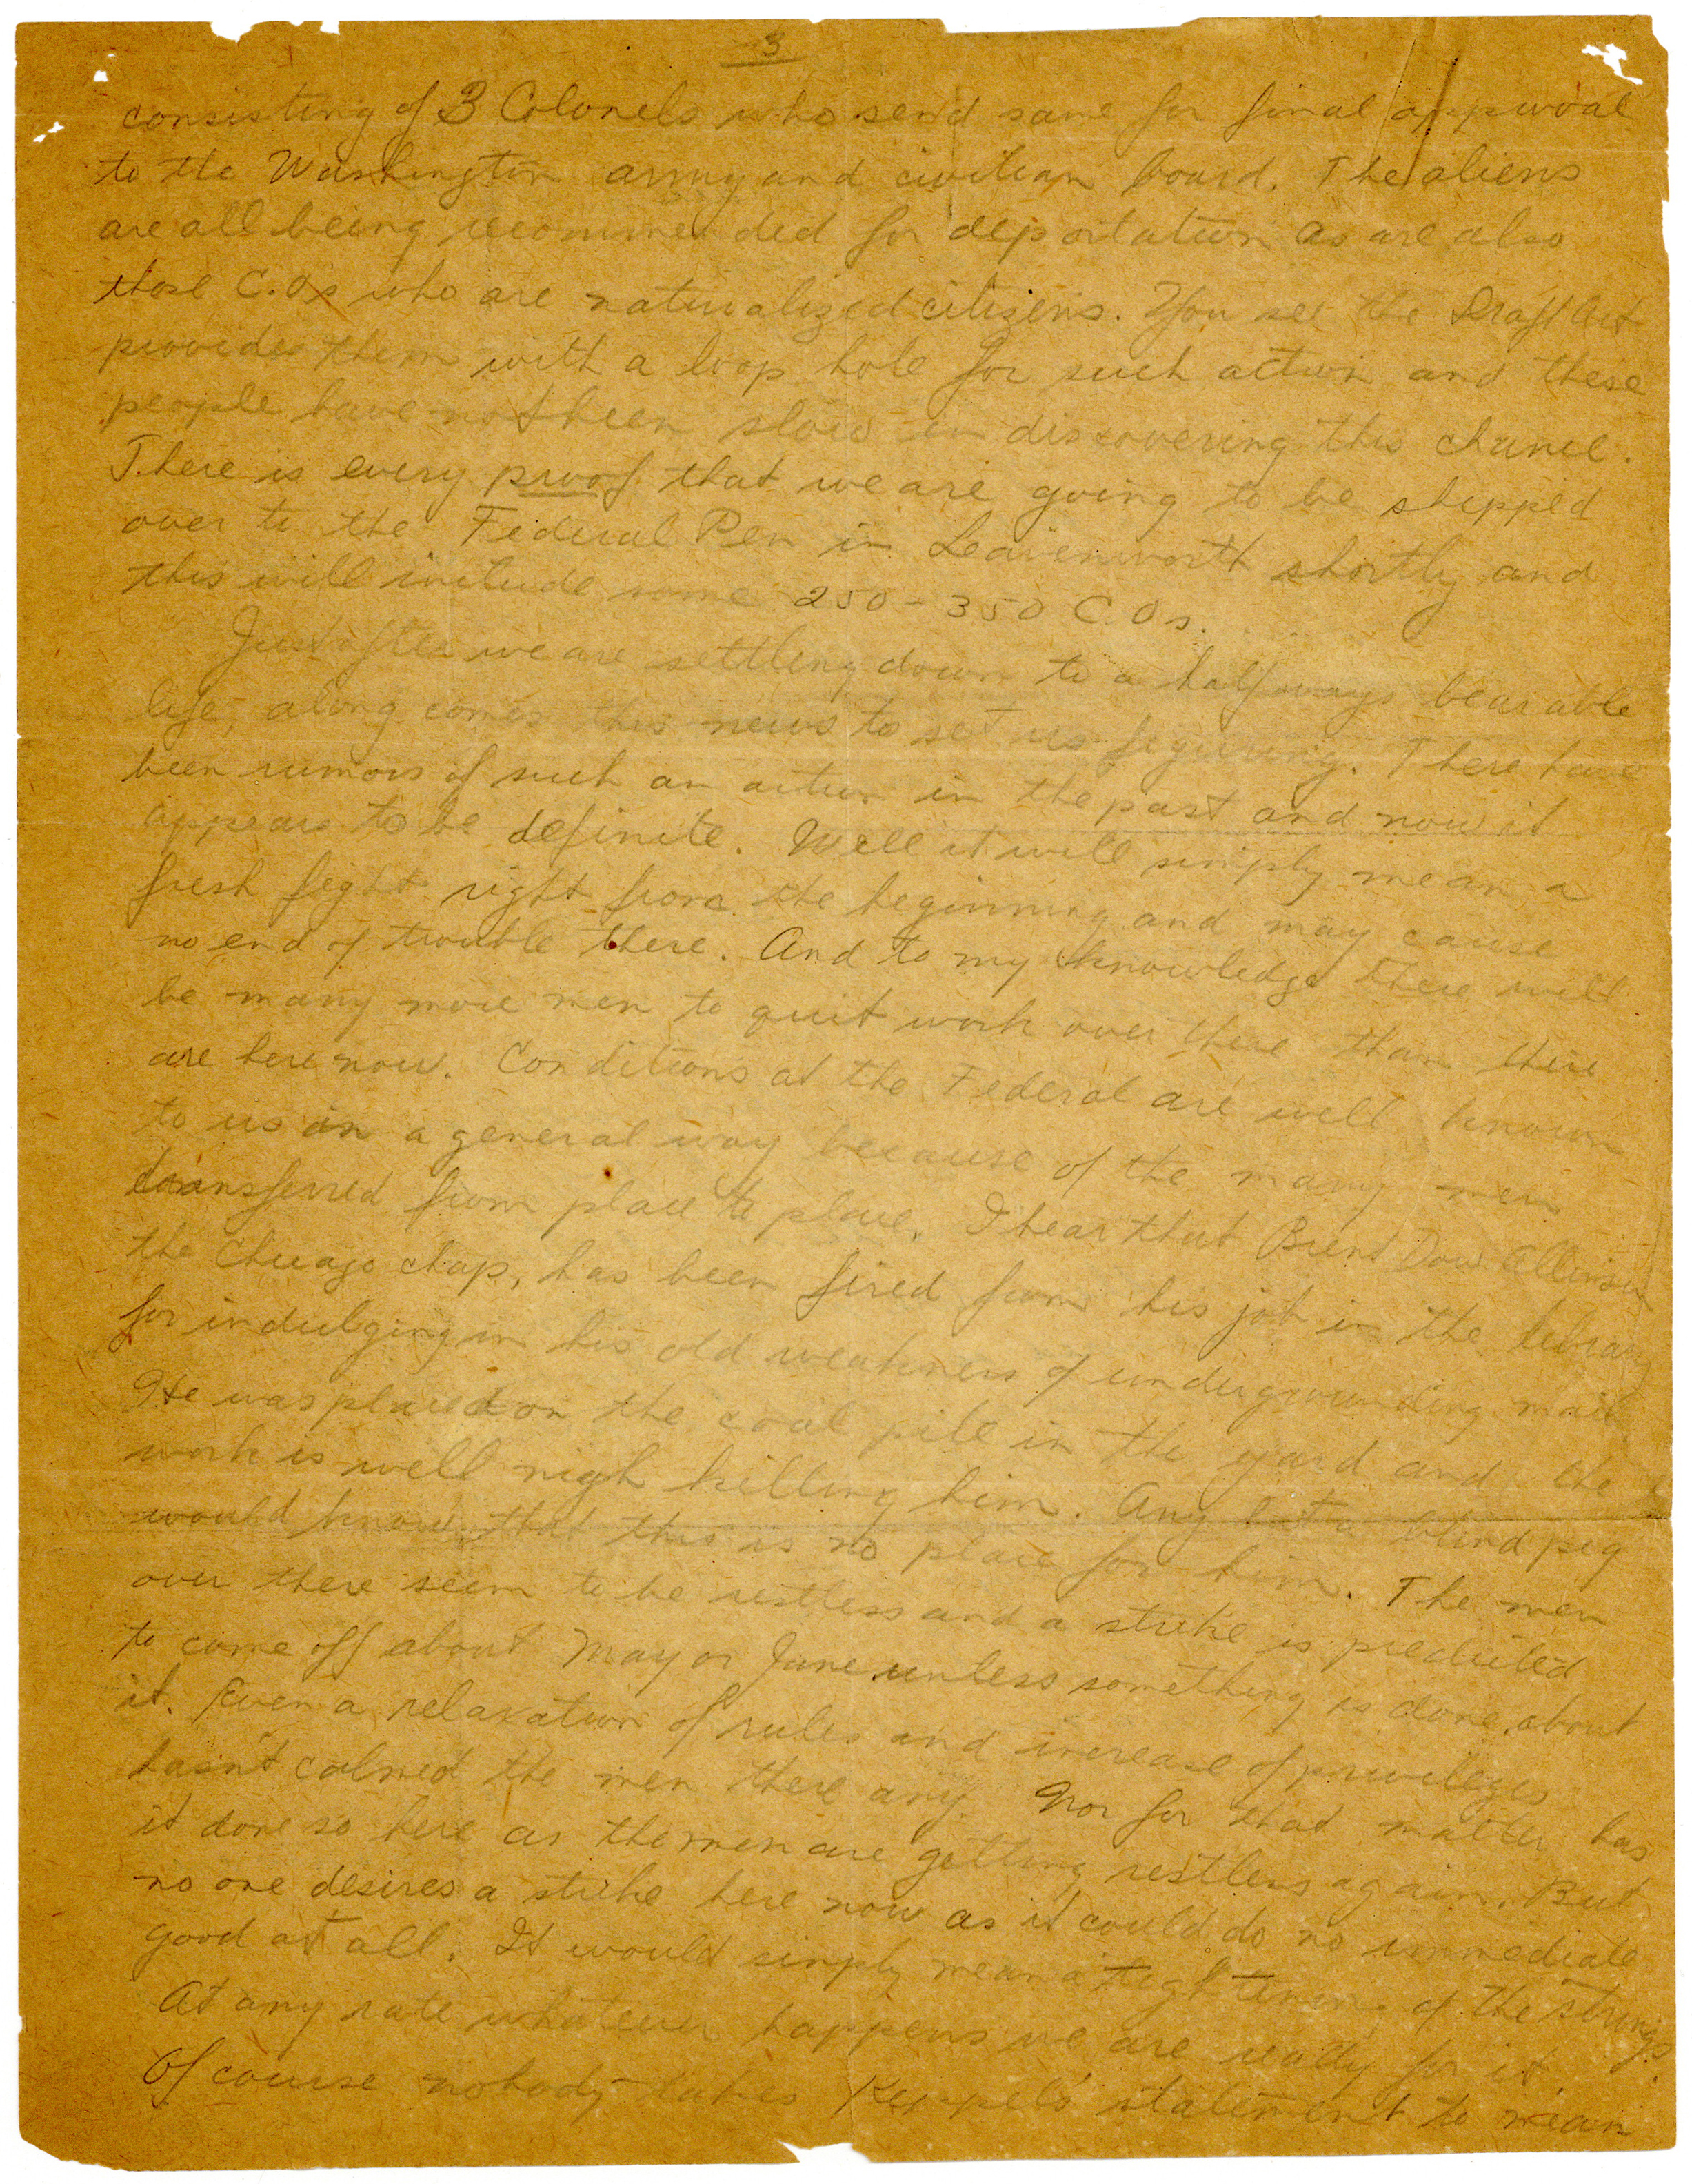 3
consisting of 3 Colonels who send same for final approval
to the Washington army and civilian board. The aliens
are all being recommended for deportation as are also
those C.Os who are naturalized citizens. You see the Draft Act
provides them with a loop hole for such action and these
people have not been slow in discovering this chance.
There is every proof that we are going to be shipped
over to the Federal Pen in Leavenworth shortly and
this will include some 250-350 C.Os.
Just after we are settling down to a halfways bearable
life, along comes this news to set us figuring. There have
been rumors of such an action in the past and now it
appears to be definite. Well it will simply mean a
fresh fight right from the beginning and may cause
no end of trouble there. And to my knowledge there will
be many more men to quit work over there than there
are here now. Conditions at the Federal are well known
to us in a general way because of the many men
transferred from place to place. I hear that Brent Dow Allinson
the Chicago chap, has been fired from his job in the library
for indulging in his old weakness of undergrounding mail.
He was placed on the coal pile in the yard and the
work is well nigh killing him. Any but a blind pig
would know that this is no place for him. The men
over there seem to be restless and a strike is predicted
to come off about May or June unless something is done about
it. Even a relaxation of rules and increase of privileges
hasn't calmed the men there any. Nor for that matter has
it done so here as the men are getting restless again. But
no one desires a strike here now as it could do no immediate
good at all. It would simply mean a tightening of the strings.
At any rate whatever happens we are ready for it.
Of course nobody takes Keppel's statement to mean